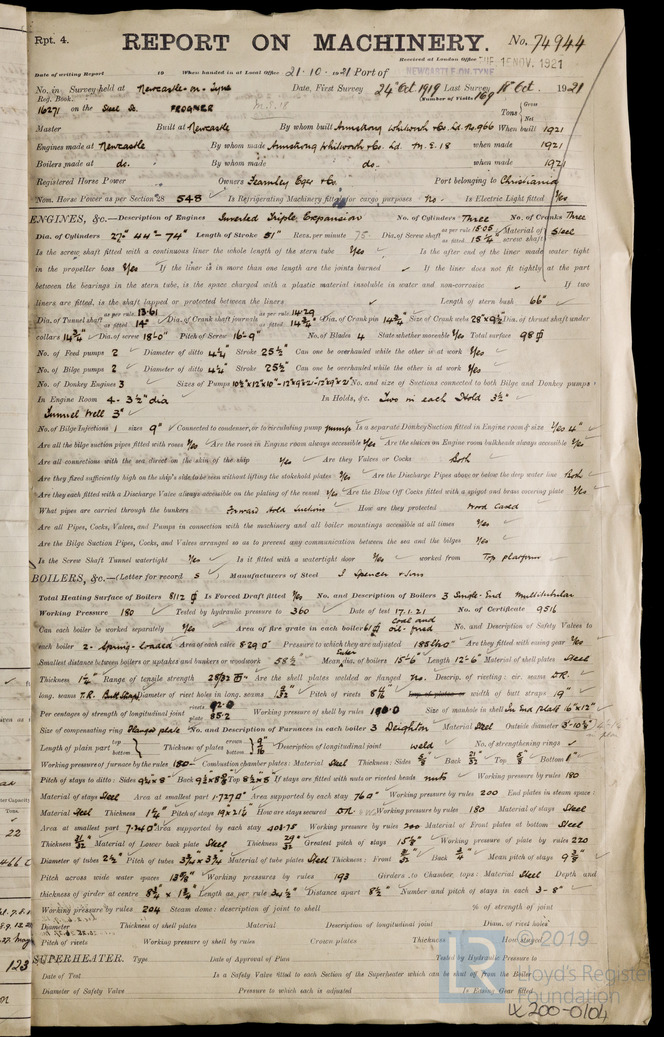 Rpt. 4.
REPORT ON MACHINERY.
No. 74944
Received at London Office TUE. 15 NOV. 1921
Date of writing Report 19 When handed in at Local Office 21.10.1921 Port of NEWCASTLE-ON-TYNE
No. in Survey held at Newcastle-on-Tyne Date, First Survey 24th Oct 1919 Last Survey 18th Oct. 1921
Reg. Book. (Number of Visits 169
16271 on the Steel Sr. FROGNER Tons { Gross Net
Master Built at Newcastle By whom built Armstrong Whitworth & Co. Ld. No. 966 When built 1921
Engines made at Newcastle By whom made Armstrong Whitworth & Co. Ld. M.E. 18 when made 1921
Boilers made at do. By whom made do. when made 1921
Registered Horse Power Owners Fearnley Eger & Co. Port belonging to Christiania
Nom. Horse Power as per Section 28 548 Is Refrigerating Machinery fitted for cargo purposes No Is Electric Light fitted Yes
ENGINES, &c.—Description of Engines Inverted Triple Expansion No. of Cylinders Three No. of Cranks Three
Dia. of Cylinders 27" 44" 74" Length of Stroke 51" Revs. per minute 75 Dia. of Screw shaft as per rule 15.05 as fitted 15¼" Material of screw shaft Steel
Is the screw shaft fitted with a continuous liner the whole length of the stern tube Yes Is the after end of the liner made water tight
in the propeller boss Yes If the liner is in more than one length are the joints burned If the liner does not fit tightly at the part
between the bearings in the stern tube, is the space charged with a plastic material insoluble in water and non-corrosive If two
liners are fitted, is the shaft lapped or protected between the liners Length of stern bush 66"
Dia. of Tunnel shaft as per rule 13.61 as fitted 14" Dia. of Crank shaft journals as per rule 14.29 as fitted 14¾" Dia. of Crank pin 14¾" Size of Crank webs 28"x9½" Dia. of thrust shaft under
collars 14¾" Dia. of screw 18'-0" Pitch of Screw 16'-9" No. of Blades 4 State whether moveable Yes Total surface 98
No. of Feed pumps 2 Diameter of ditto 4¼" Stroke 25½" Can one be overhauled while the other is at work Yes
No. of Bilge pumps 2 Diameter of ditto 4¼" Stroke 25½" Can one be overhauled while the other is at work Yes
No. of Donkey Engines 3 Sizes of Pumps No. and size of Suctions connected to both Bilge and Donkey pumps
In Engine Room 4-3½" dia In Holds, &c. Two in each Hold 3½"
Tunnel Well 3"
No. of Bilge Injections 1 sizes 9" Connected to condenser, or to circulating pump pump Is a separate Donkey Suction fitted in Engine room & size Yes 4"
Are all the bilge suction pipes fitted with roses Yes Are the roses in Engine room always accessible Yes Are the sluices on Engine room bulkheads always accessible Yes
Are all connections with the sea direct on the skin of the ship Yes Are they Valves or Cocks Both
Are they fixed sufficiently high on the ship's side to be seen without lifting the stokehold plates Yes Are the Discharge Pipes above or below the deep water line Both
Are they each fitted with a Discharge Valve always accessible on the plating of the vessel Yes Are the Blow Off Cocks fitted with a spigot and brass covering plate Yes
What pipes are carried through the bunkers Forward Hold Suctions How are they protected Wood Cased
Are all Pipes, Cocks, Valves, and Pumps in connection with the machinery and all boiler mountings accessible at all times Yes
Are the Bilge Suction Pipes, Cocks, and Valves arranged so as to prevent any communication between the sea and the bilges Yes
Is the Screw Shaft Tunnel watertight Yes Is it fitted with a watertight door Yes worked from Top platform
BOILERS, &c.—(Letter for record S) Manufacturers of Steel J Spencer & Sons
Total Heating Surface of Boilers 8112 Is Forced Draft fitted Yes No. and Description of Boilers 3 Single-End Multitubular
Working Pressure 180 Tested by hydraulic pressure to 360 Date of test 17.1.21 No. of Certificate 9516
Can each boiler be worked separately Yes Area of fire grate in each boiler 61 coal and oil-fired No. and Description of Safety Valves to
each boiler 2-Spring-loaded Area of each valve 8.29 Pressure to which they are adjusted 185 lbs Are they fitted with easing gear Yes
Smallest distance between boilers or uptakes and bunkers or woodwork 58½" Mean dia. of boilers 15'-6" Length 12'-6" Material of shell plates Steel
Thickness 1¼" Range of tensile strength 28/32 Are the shell plates welded or flanged No. Descrip. of riveting: cir. seams D.R.
long. seams T.R. Butt Strap Diameter of rivet holes in long. seams Pitch of rivets width of butt straps 19"
Per centages of strength of longitudinal joint rivets 92.0 plate 85.2 Working pressure of shell by rules Size of manhole in shell In End plate 16"x12"
Size of compensating ring Flanged plate No. and Description of Furnaces in each boiler 3 Deighton Material Steel Outside diameter 3'-10⅝"
Length of plain part top bottom Thickness of plates crown bottom 9/16" Description of longitudinal joint weld No. of strengthening rings
Working pressure of furnace by the rules 180 Combustion chamber plates: Material Steel Thickness: Sides ⅝" Back 21/32" Top ⅝" Bottom 1"
Pitch of stays to ditto: Sides Back Top If stays are fitted with nuts or riveted heads nuts Working pressure by rules 180
Material of stays Steel Area at smallest part 1.727 Area supported by each stay 76 Working pressure by rules 200 End plates in steam space:
Material Steel Thickness 1¼" Pitch of stays 19x21¼ How are stays secured D.N. Working pressure by rules 180 Material of stays Steel
Area at smallest part 7.24 Area supported by each stay 403.75 Working pressure by rules 200 Material of Front plates at bottom Steel
Thickness Material of Lower back plate Steel Thickness 29/32 Greatest pitch of stays 15⅞" Working pressure of plate by rules 220
Diameter of tubes 2½" Pitch of tubes 3¾"x3¾" Material of tube plates Steel Thickness: Front Back ¾" Mean pitch of stays
Pitch across wide water spaces Working pressures by rules 193 Girders to Chamber tops: Material Steel Depth and
thickness of girder at centre Length as per rule 34½" Distance apart 8½" Number and pitch of stays in each 3-8"
Working pressure by rules 204 Steam dome: description of joint to shell % of strength of joint
Diameter Thickness of shell plates Material Description of longitudinal joint Diam. of rivet holes
Pitch of rivets Working pressure of shell by rules Crown plates Thickness How stayed
SUPERHEATER. Type Date of Approval of Plan Tested by Hydraulic Pressure to
Date of Test Is a Safety Valve fitted to each Section of the Superheater which can be shut off from the Boiler
Diameter of Safety Valve Pressure to which each is adjusted Is Easing Gear fitted
© 2019
Lloyd's Register
Foundation
LR
LX 200-0104
22
123